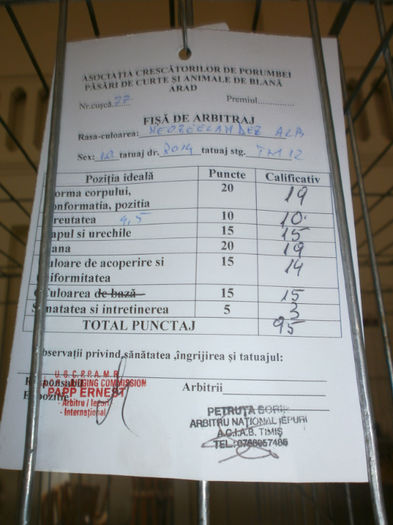 ASOCIAȚIA CRESCĂTORILOR DE PORUMBEI
PĂSĂRI DE CURTE ȘI ANIMALE DE BLANĂ
ARAD
Nr.cușcă 77 Premiul.............
FIȘĂ DE ARBITRAJ
Rasa-culoarea: NEOZEELANDEZ ALB
Sex: 1,0 tatuaj dr. 2014 tatuaj stg. TM 12
Poziția ideală Puncte Calificativ
orma corpului, 20 19
onformatia, pozitia
reutatea 4,5 10 10
apul si urechile 15 15
ana 20 19
uloare de acoperire si 15 14
niformitatea
Culoarea de bază 15 15
Sănatatea si intretinerea 5 3
TOTAL PUNCTAJ 95
bservații privind sănătatea ,îngrijirea și tatuajul:
U.G.C.P.P.A.M.R.
JUDGING COMMISSION
Arbitrii
PAPP ERNEST
- Arbitru / Iepuri
- International
PETRUȚA SORIN
ARBITRU NAȚIONAL IEPURI
A.C.I.A.B. TIMIȘ